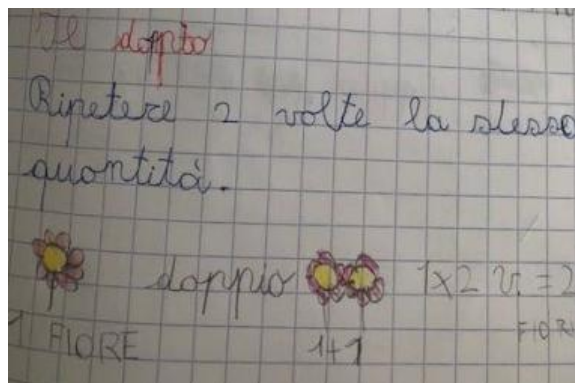 Il doppio
Ripetere 2 volte la stessa
quantità.
doppio 1x2 v. = 2
1 FIORE 1+1 FIORI